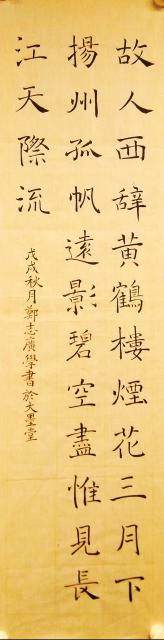 故人西辞黄鶴樓煙花三月下
揚州孤帆遠影碧空盡惟見長
江天際流
戊戌秋月鄭志廣學書於大墨堂